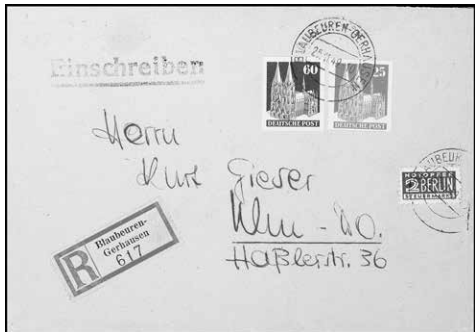 Einschreiben
BLAUBEUREN-GERHAUSEN
60
DEUTSCHE POST
25
DEUTSCHE POST
Herrn
Kurt Gieser
Ulm - Do.
Haßlerstr. 36
NOTOPFER
2 BERLIN
STEUERMARKE
R
Blaubeuren-
Gerhausen
617